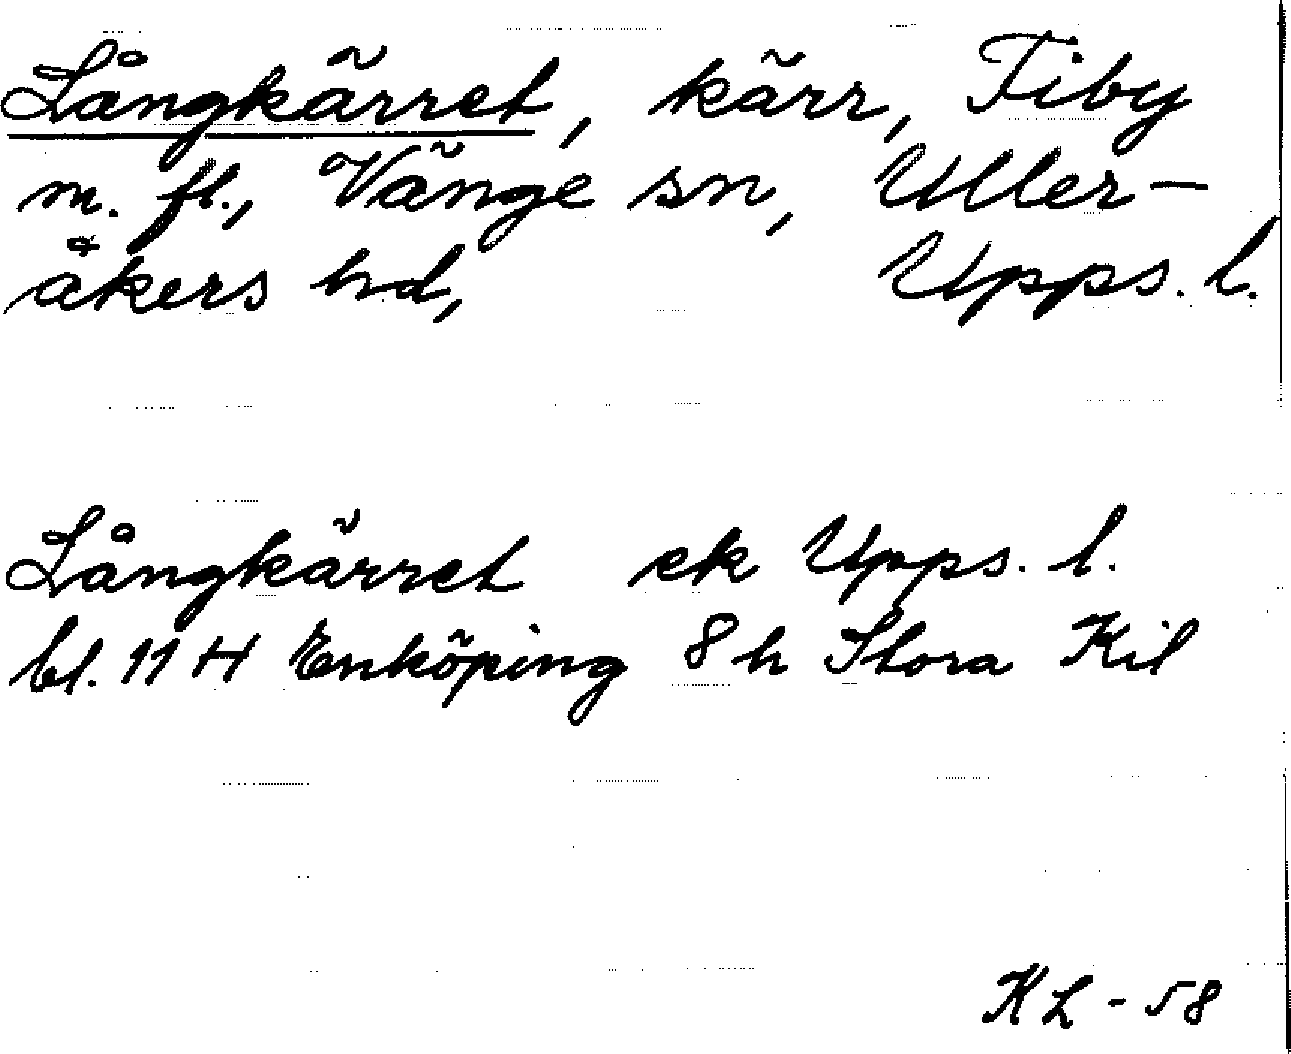 Långkärret, kärr, Tiby
m. fl., Vänge sn, Uller-
åkers hd, Upps. l.
Långkärret ek Upps. l.
bl. 11 H Enköping 8 h Stora Kil
KL - 58